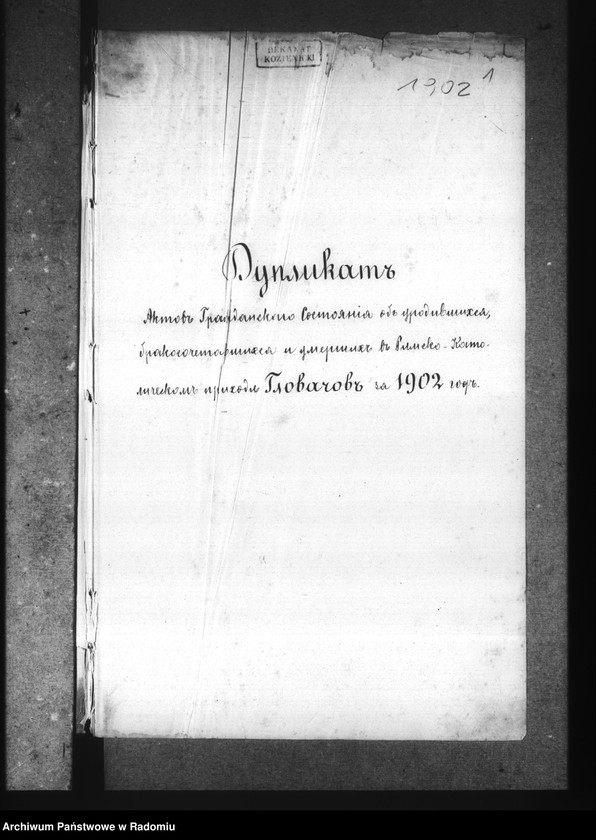 DEKANAT
KOZIENICKI
1902 1
Дупликатъ
Актовъ Гражданскаго Состоянія объ уродившихся,
бракосочетавшихся и умершихъ въ Римско-Като-
лическомъ приходѣ Гловачовъ за 1902 годъ.
Archiwum Państwowe w Radomiu